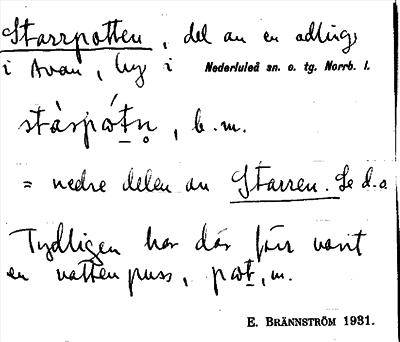 Starrpotten, del av en odling,
i Avan, by i Nederluleå sn. o. tg. Norrb. l.
stárpòtn̥, b.m.
= nedre delen av Starren. Se d.o
Tydligen har där förr varit
en vattenpuss, pøt, m.
E. BRÄNNSTRÖM 1931.